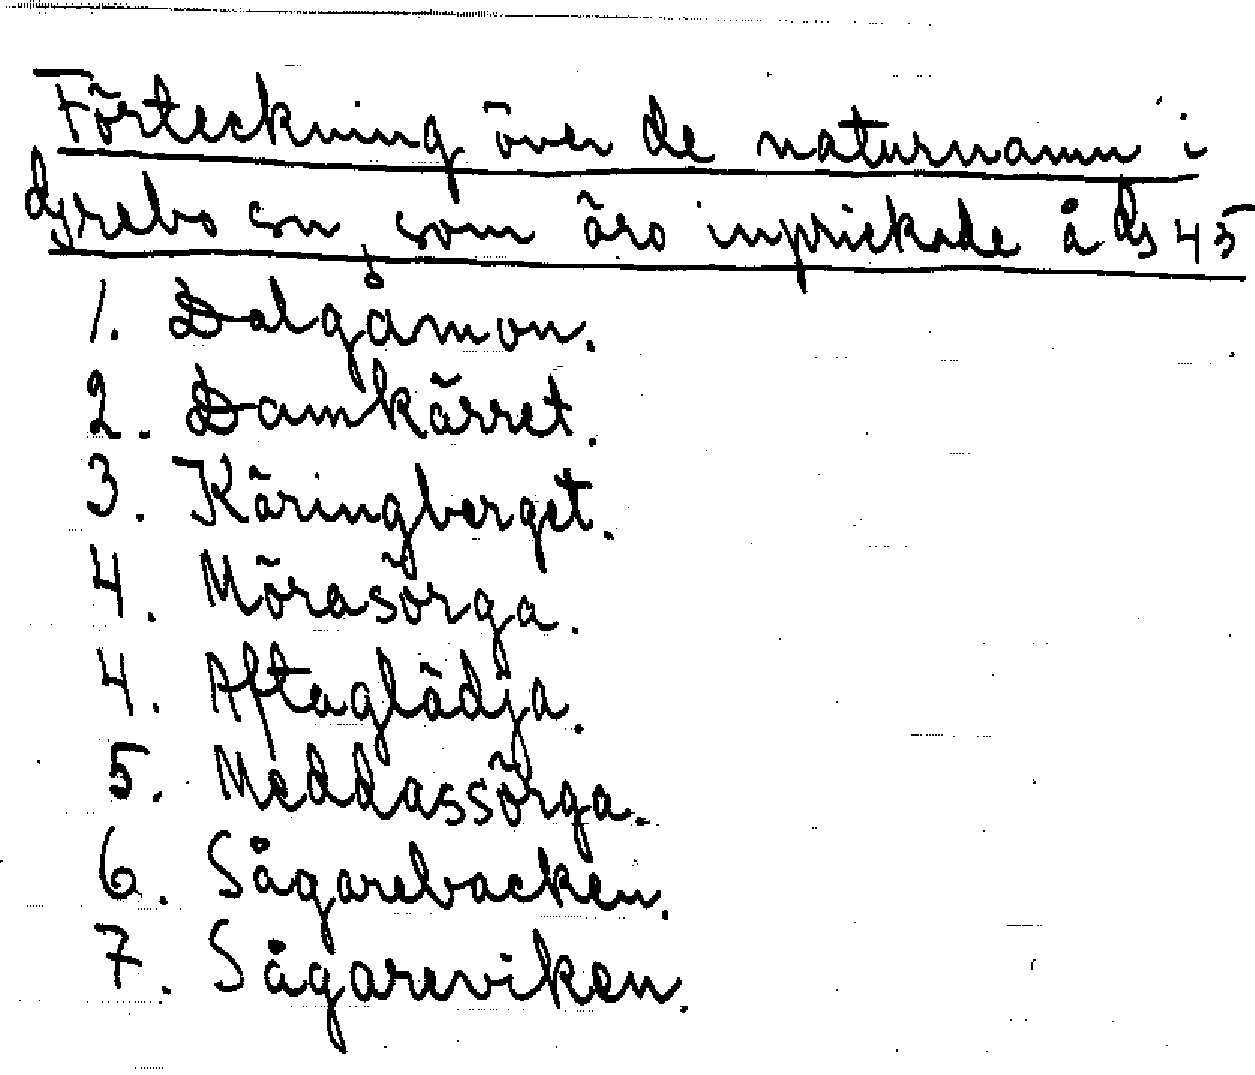 Förteckning över de naturnamn i
Gyrebo sn som äro inprickade å ds 45
1. Dalgåmon.
2. Damkärret.
3. Käringberget.
4. Mörasörga.
4. Aftaglädja.
5. Meddassörga.
6. Sågarebacken.
7. Sågareviken.